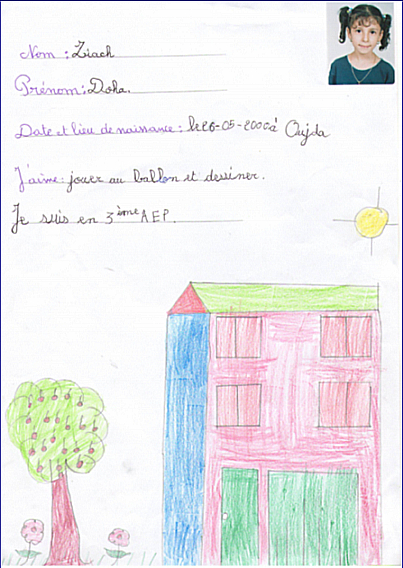 Nom : Ziach
Prénom : Doha.
Date et lieu de naissance : le 26-05-2000 à Oujda
J'aime : jouer au ballon et dessiner.
Je suis en 3ème AEP.